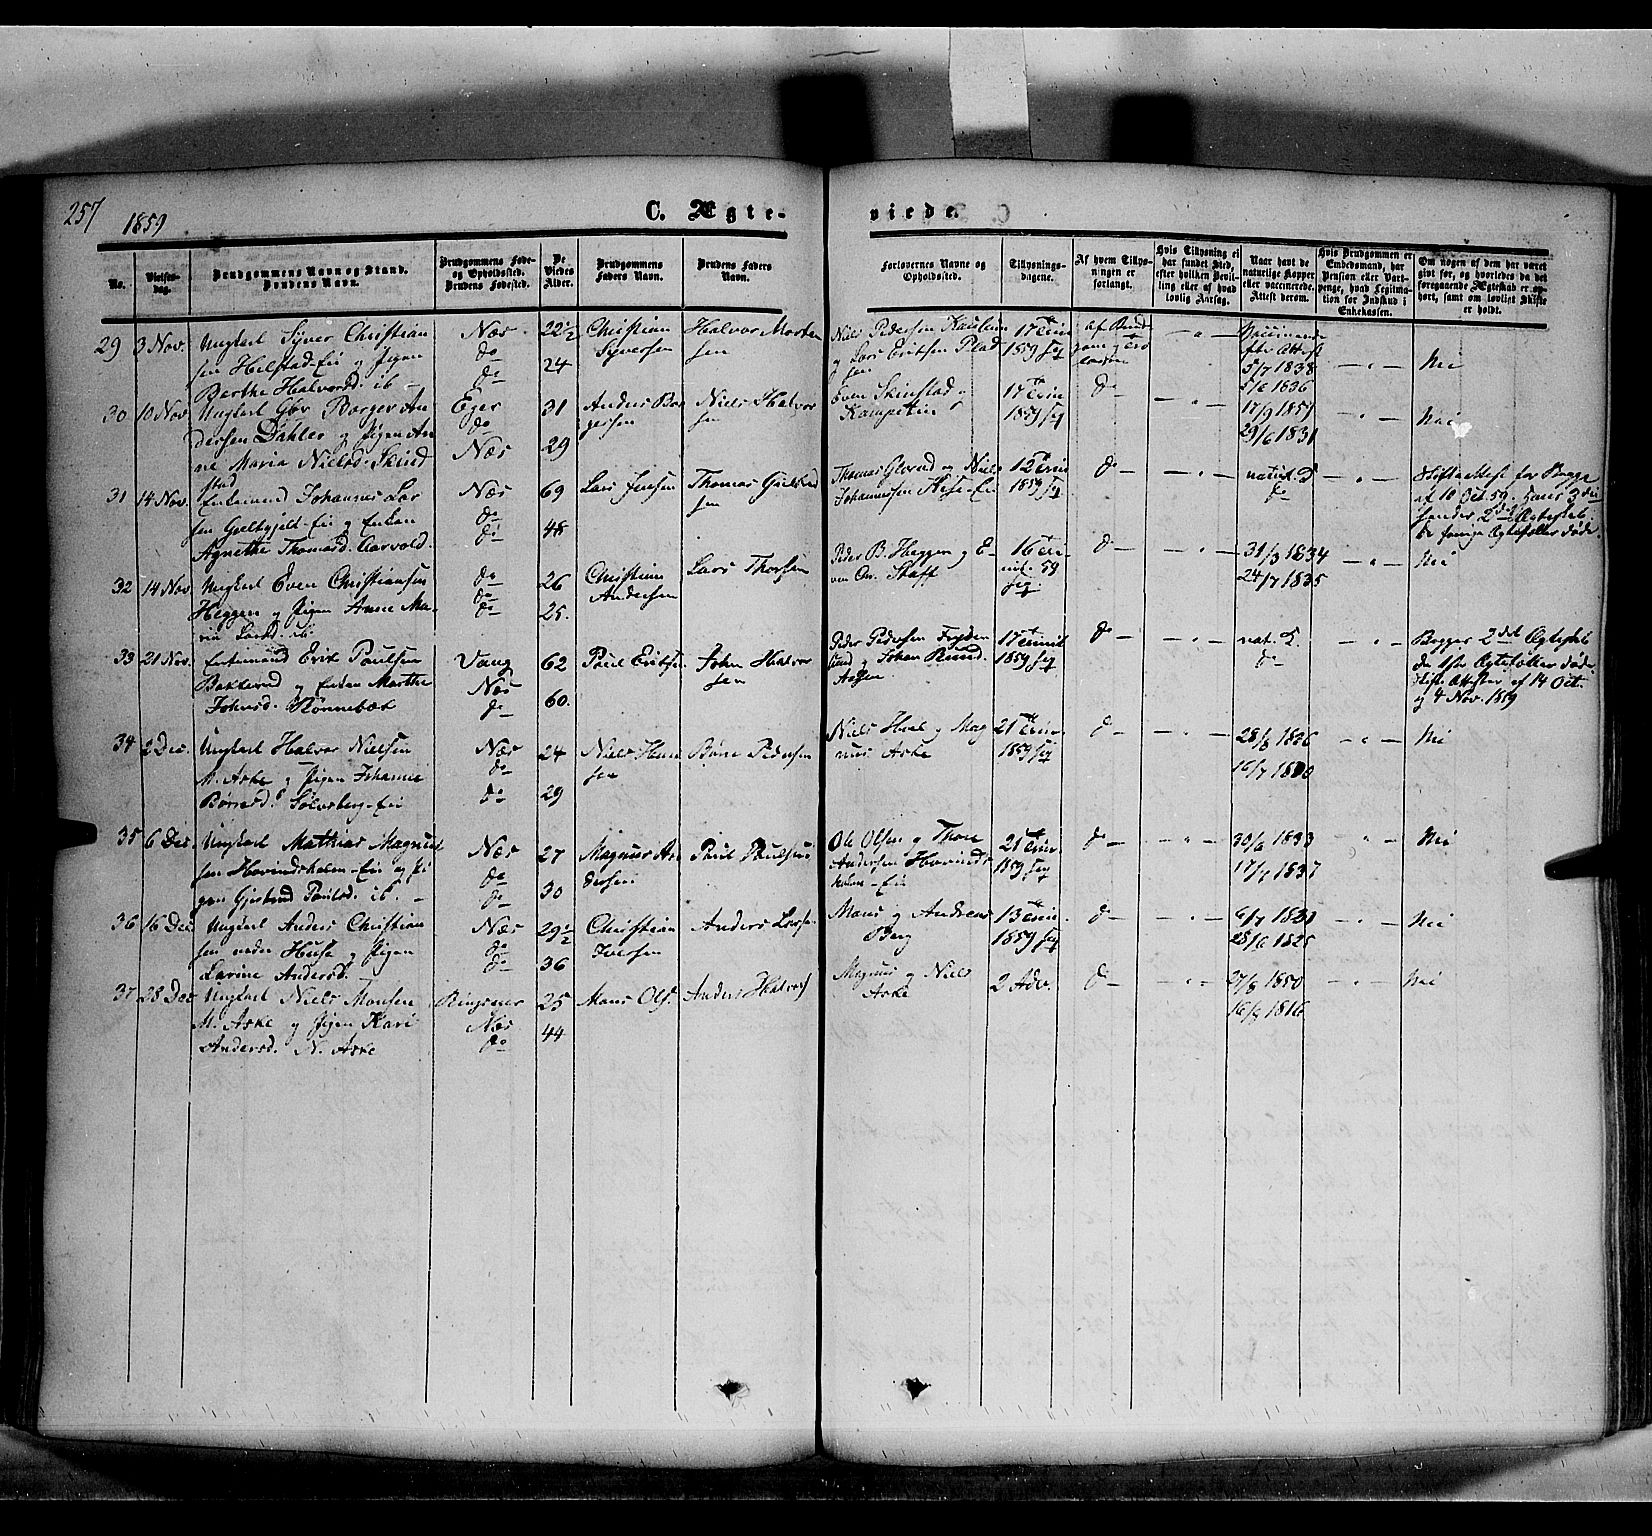 257
1859
C. Ægte-
viede.
No.
Vielses-
dag.
Brudgommens Navn og Stand.
Brudens Navn.
Brudgommens Føde-
og Opholdssted.
Brudens Fødested.
De
Viedes
Alder.
Brudgommens
Faders Navn.
Brudens Faders
Navn.
Forlovernes Navne og
Opholdssted.
Tillysnings-
dagene.
Af hvem Tillys-
ningen er
forlangt.
Hvis Tillysning ei
har fundet Sted,
efter hvilken Bevil-
ling eller af hvad
lovlig Aarsag.
Naar havt de
naturlige Kopper
eller vaccinerede.
Attest derom.
Hvis Brudgommen er
Embedsmand, har
Pension eller Vart-
penge, hvad Legitima-
tion for Indskud i
Enkekassen.
Om nogen af dem har været
gift før, og hvorledes da det
foregaaende Ægteskab er op-
hørt, samt om lovligt Skifte
er holdt.
29
3 Nov.
Ungkarl Syver Christian
sen Helstad-Ei og Pigen
Berthe Halvorsd. ib -
Næs
do
do
22½
24
Christian
Syversen
Halvor Morten
sen
Niels Pedersen
og Lars Eriksen
17 Trin
1859 seq
af Brud
gom og
5/7 1838
5/6 1836
Nei
30
10 Nov.
Ungkarl Borger An
dersen Dahler og Pigen An
ne Maria Nielsd. Skind
stad
Eger
do
Næs
31
29
Anders Bor
gersen
Niels Halvor
sen
Even Skinstad
17 Trin
1859 seq
do
17/9 1857
29/6 1831
Nei
31
14 Nov.
Enkemand Johannes Lar
sen Gvelhgjelt-Ei og Enken
Agnethe Thomasd. Aarvold.
Næs
do
do
69
48
Lars Jensen
Thomas
sen
Thomas og Niels
Johannesen
12 Trin
1859 seq
do
naturl.
do
Skifteattest for Begge
af 10 Oct. 59. Hans 3die
hendes 2det Ægteskab
De forrige Ægtefolker døde.
32
14 Nov.
Ungkarl Even Christiansen
Heggen og Pigen Anne Ma-
ria Larsd. ib.
do
do
do
26
25.
Christian
Andersen
Lars Thorsen
Peder B. Heggen og E-
ven Chr. Staff
16 Tri-
nit. 59
seq
do
31/3 1834
24/7 1835
Nei
33
21 Nov.
Enkemand Erik Paulsen
Bakkerud og Enken Marthe
Johnsd. Rønnebæk
Vang
Næs
do
62
60.
Paul Eriksen
John Halvor
sen
Peder Pedersen
og Johan Rund.
Aassen
17 Trinit
1859 seq
do
nat.
do
Begges 2det Ægteskab
De 1ste Ægtefolker døde.
Skift. Attester af 14 Oct.
og 4 Nov. 1859
34
2 Dec.
Ungkarl Halvor Nielsen
N. Aske og Pigen Johanne
Børresd. Sølvsberg-Ei
Næs
do
do
24
29
Niels Han
sen
Børre Pedersen
Niels og Mag
nus Aske
21 Trin
1859 seq
do
28/8 1836
16/7 1830
Nei
35
6 Dec.
Ungkarl Mathias Magnus
sen Hovindsholm-Ei og Pi
gen Gjertrud Paulsd. ib. -
Næs
do
do
27
30
Magnus An
dersen
Paul Paulsen
Ole Olsen og Thore
Andersen Hovinds
holm-Ei
21 Trin
1859 seq
do
30/6 1833
17/7 1837
Nei
36
16 Dec
Ungkarl Anders Christian
sen under Huse og Pigen
Larine Andersd.
Næs
do
do
29½
36
Christian
Iversen
Anders Larsen
Mons og Andreas
Berg
13 Trin.
1859 seq
do
6/7 1831
28/6 1825
Nei
37
28 Dec
Ungkarl Niels Monsen
N. Aske og Pigen Kari
Andersd. N. Aske
Ringsager
Næs
do
25
44
Mons Ols.
Anders Halvors
Magnus og Niels
Aske
2 Adv.
do
27/8 1850
16/9 1816
Nei